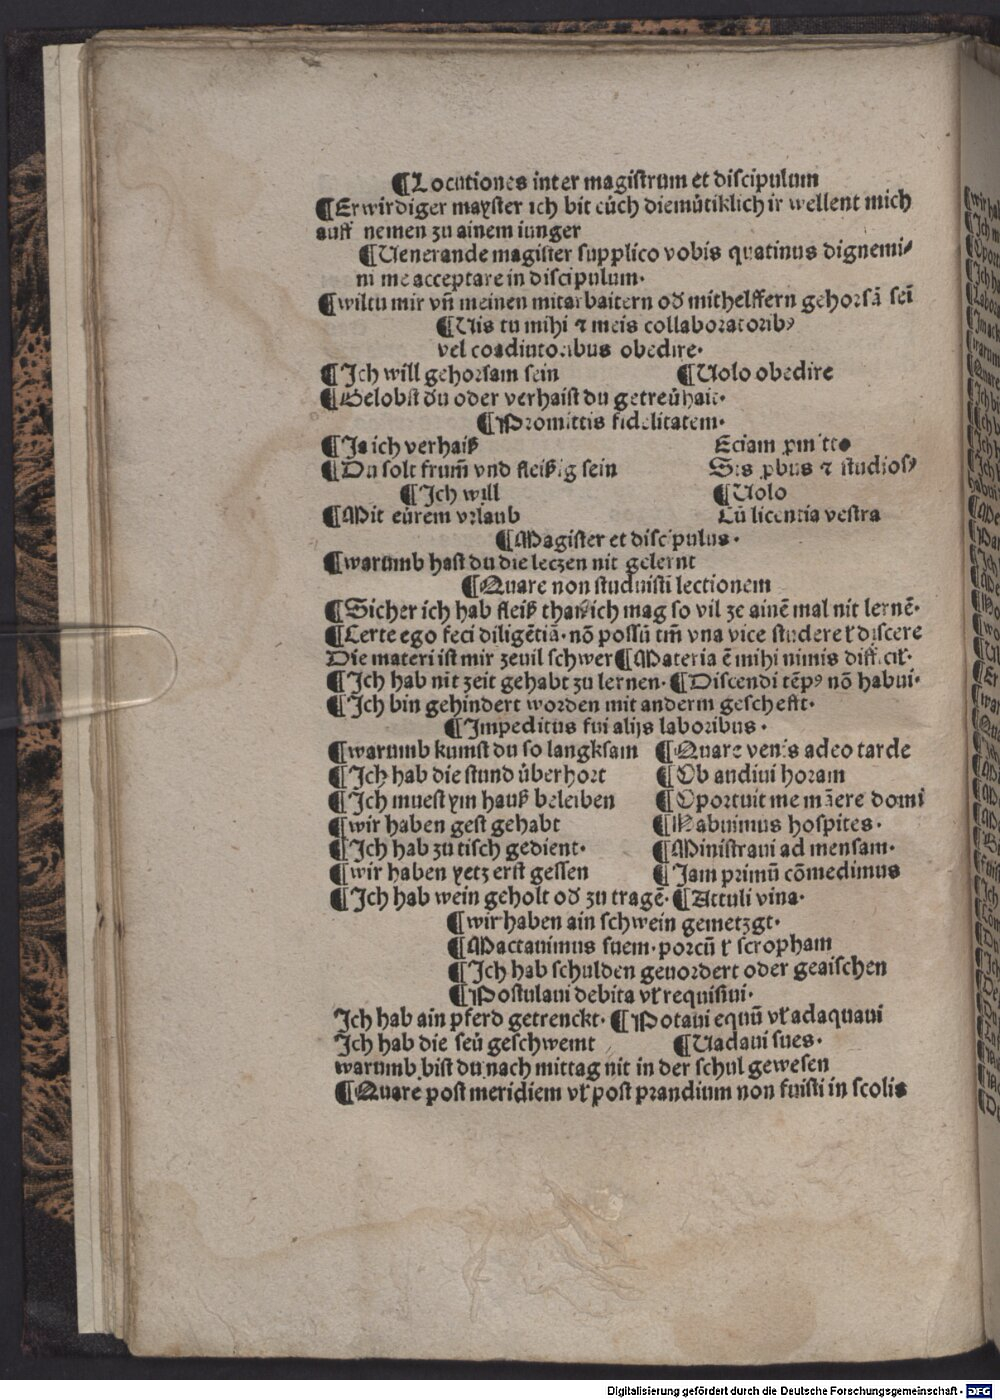 ¶Locutiones inter magistrum et discipulum
¶Erwirdiger mayster ich bit eüch diemütiklich ir wellent mich
auff nemen zu ainem iunger
¶Uenerande magister supplico vobis quatinus dignemi⸗
ni me acceptare in discipulum.
¶wiltu mir vñ meinen mitarbaitern oď mithelffern gehorsã seī
¶Uis tu mihi ⁊ meis collaboratorib⁹
vel coadiutoribus obedire.
¶Ich will gehorsam sein ¶Uolo obedire
¶Gelobst du oder verhaist du getreühait.
¶Promittis fidelitatem.
¶Ja ich verhaiß Eciam ꝓmitto
¶Du solt frum̃ vnd fleißig sein Sis ꝓbus ⁊ studios⁹
¶Ich will ¶Uolo
¶Mit eürem vrlaub Cũ licentia vestra
¶Magister et discipulus.
¶warumb hast du die leczen nit gelernt
¶Quare non studuisti lectionem
¶Sicher ich hab fleiß than ich mag so vil ze ainẽ mal nit lernẽ.
¶Certe ego feci diligẽtiã. nõ possũ tm̃ vna vice studere vł discere
Die materi ist mir zeuil schwer ¶Materia ē mihi nimis difficił.
¶Ich hab nit zeit gehabt zu lernen. ¶Discendi tẽp⁹ nõ habui.
¶Ich bin gehindert worden mit anderm gescheft.
¶Impeditus fui alijs laboribus.
¶warumb kumst du so langksam ¶Quare venis adeo tarde
¶Ich hab die stund überhort ¶Ob audiui horam
¶Ich muest ym hauß beleiben ¶Oportuit me mãere domi
¶wir haben gest gehabt ¶Habuimus hospites.
¶Ich hab zu tisch gedient. ¶Ministraui ad mensam.
¶wir haben yetz erst gessen ¶Jam primũ cõmedimus
¶Ich hab wein geholt oď zu tragẽ. ¶Attuli vina.
¶wir haben ain schwein gemetzgt.
¶Mactauimus suem. porcũ vł scropham
¶Ich hab schulden geuordert oder geaischen
¶Postulaui debita vł requisiui.
Ich hab ain pferd getrenckt. ¶Potaui equũ vł adaquaui
Ich hab die seü geschwemt ¶Uadaui sues.
warumb bist du nach mittag nit in der schul gewesen
¶Quare post meridiem vł post prandium non fuisti in scolis
Digitalisierung gefördert durch die Deutsche Forschungsgemeinschaft - DFG